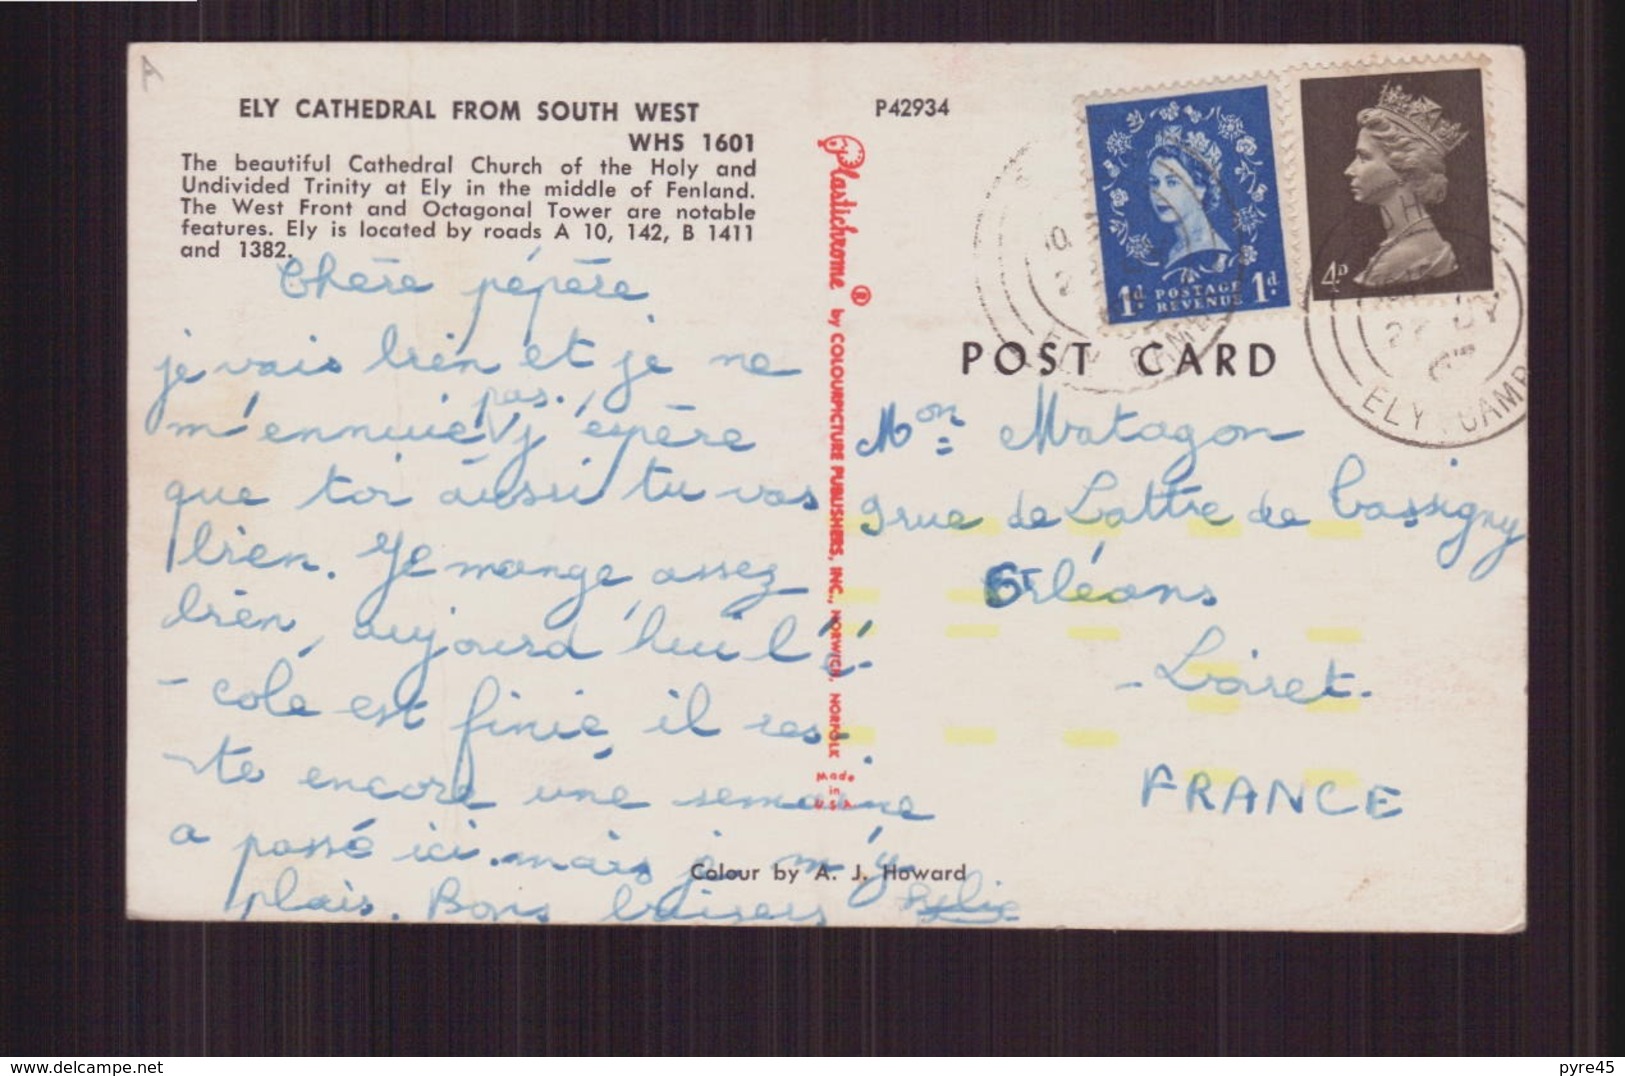 A
ELY CATHEDRAL FROM SOUTH WEST
WHS 1601
The beautiful Cathedral Church of the Holy and
Undivided Trinity at Ely in the middle of Fenland.
The West Front and Octagonal Tower are notable
features. Ely is located by roads A 10, 142, B 1411
and 1382.
Chère pépère
je vais bien et je ne
pas.
m'ennuie j'éspère
que toi aussi tu vas
bien. Je mange assez
bien, aujourd'hui l'é-
-cole est finie, il res-
-te encore une semaine
a passé ici. mais je m'y
plais. Bons baisers
Plastichrome ® by COLOURPICTURE PUBLISHERS, INC., NORWICH, NORFOLK
Made
in
USA
P42934
1d POSTAGE REVENUE 1d
4D
ELY CAMB
27 JY
ELY CAMB
POST CARD
Mon Matagon
9 rue de Lattre de Tassigny
Orléans
- Loiret.
FRANCE
Colour by A. J. Howard
delcampe.net
pyre45